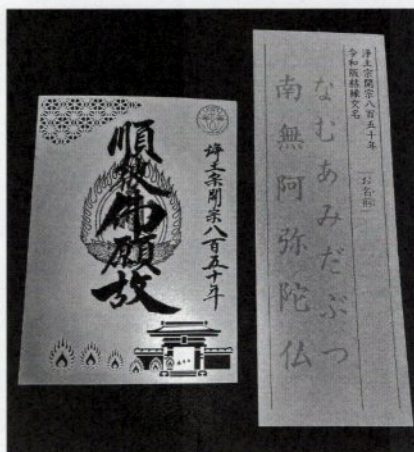 順彼佛願故
浄土宗開宗八百五十年
浄土宗開宗八百五十年
令和版結縁交名
お名前
なむあみだぶつ
南無阿弥陀仏